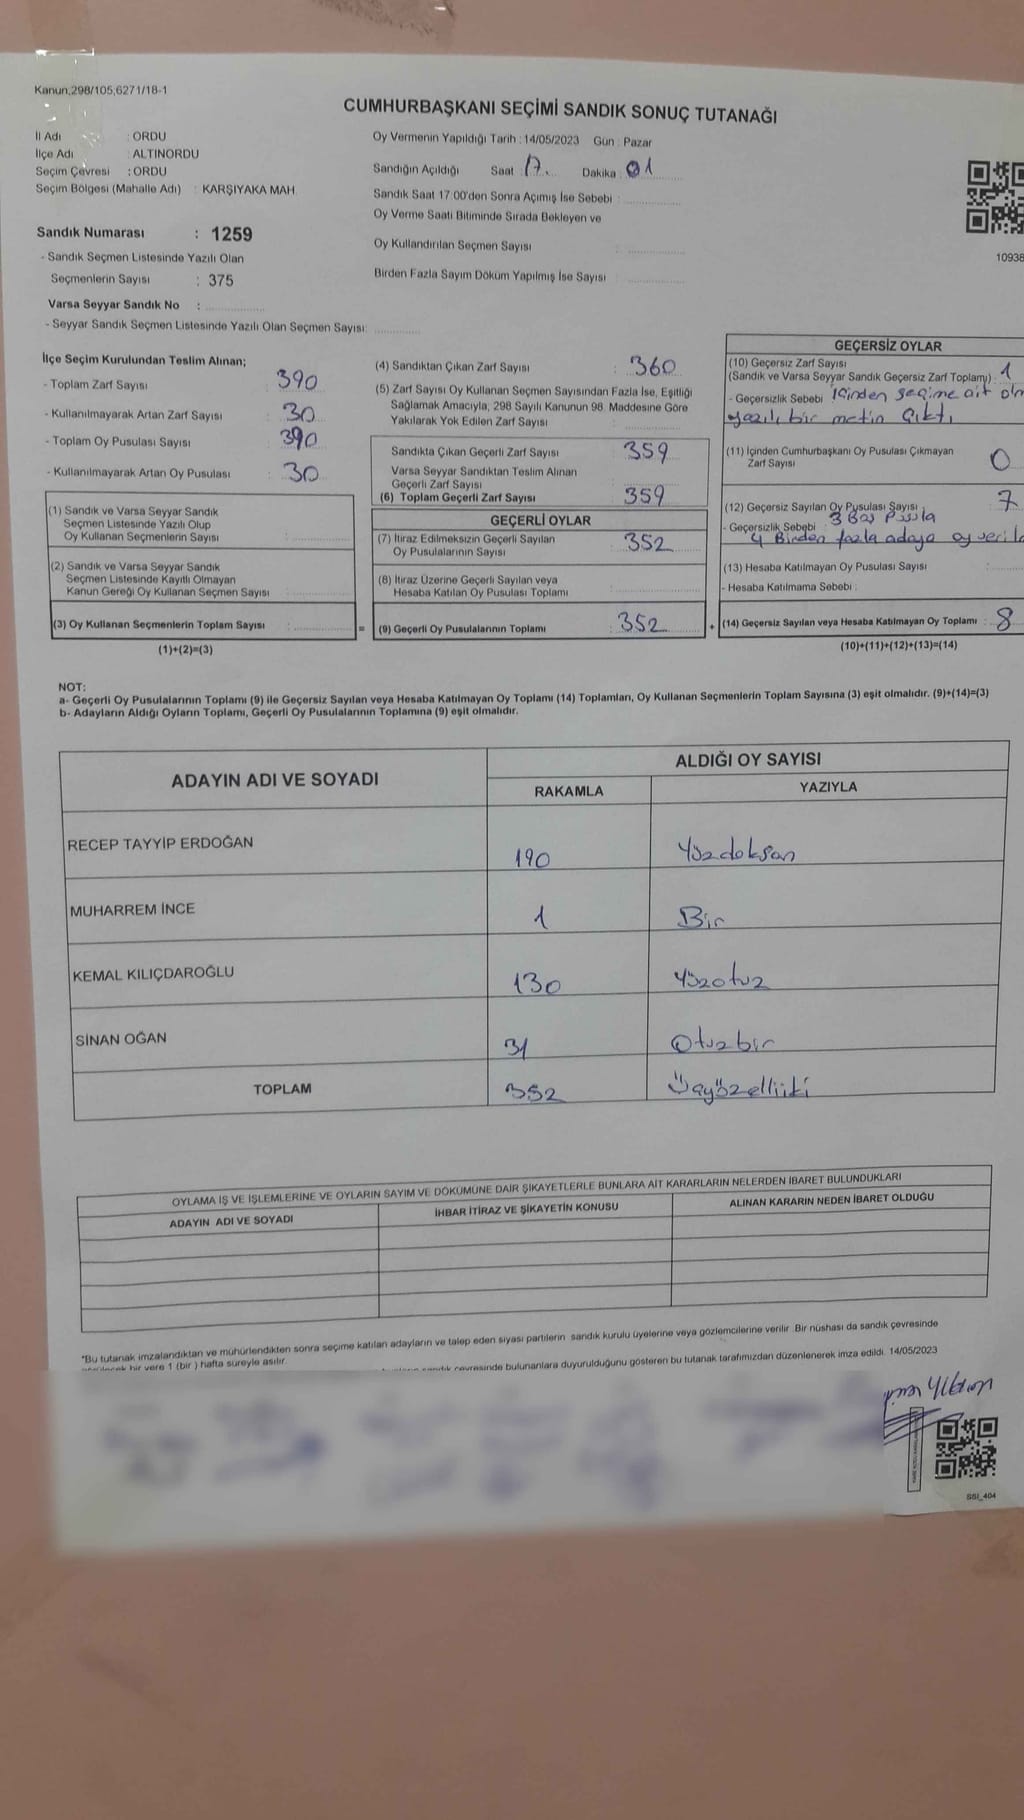 Kanun,298/105,6271/18-1
CUMHURBAŞKANI SEÇİMİ SANDIK SONUÇ TUTANAĞI
İl Adı : ORDU
İlçe Adı : ALTINORDU
Seçim Çevresi : ORDU
Seçim Bölgesi (Mahalle Adı) : KARŞIYAKA MAH.
Sandık Numarası : 1259
- Sandık Seçmen Listesinde Yazılı Olan
Seçmenlerin Sayısı : 375
Varsa Seyyar Sandık No :
- Seyyar Sandık Seçmen Listesinde Yazılı Olan Seçmen Sayısı:
Oy Vermenin Yapıldığı Tarih : 14/05/2023 Gün : Pazar
Sandığın Açıldığı Saat 17 Dakika : 01
Sandık Saat 17:00'den Sonra Açımış İse Sebebi :
Oy Verme Saati Bitiminde Sırada Bekleyen ve
Oy Kullandırılan Seçmen Sayısı :
Birden Fazla Sayım Döküm Yapılmış İse Sayısı :
10938
İlçe Seçim Kurulundan Teslim Alınan;
- Toplam Zarf Sayısı : 390
- Kullanılmayarak Artan Zarf Sayısı : 30
- Toplam Oy Pusulası Sayısı : 390
- Kullanılmayarak Artan Oy Pusulası : 30
(1) Sandık ve Varsa Seyyar Sandık
Seçmen Listesinde Yazılı Olup
Oy Kullanan Seçmenlerin Sayısı :
(2) Sandık ve Varsa Seyyar Sandık
Seçmen Listesinde Kayıtlı Olmayan
Kanun Gereği Oy Kullanan Seçmen Sayısı :
(3) Oy Kullanan Seçmenlerin Toplam Sayısı : =
(1)+(2)=(3)
(4) Sandıktan Çıkan Zarf Sayısı : 360
(5) Zarf Sayısı Oy Kullanan Seçmen Sayısından Fazla İse, Eşitliği
Sağlamak Amacıyla, 298 Sayılı Kanunun 98. Maddesine Göre
Yakılarak Yok Edilen Zarf Sayısı :
Sandıkta Çıkan Geçerli Zarf Sayısı : 359
Varsa Seyyar Sandıktan Teslim Alınan
Geçerli Zarf Sayısı :
(6) Toplam Geçerli Zarf Sayısı : 359
GEÇERLİ OYLAR
(7) İtiraz Edilmeksizin Geçerli Sayılan
Oy Pusulalarının Sayısı : 352
(8) İtiraz Üzerine Geçerli Sayılan veya
Hesaba Katılan Oy Pusulası Toplamı :
(9) Geçerli Oy Pusulalarının Toplamı : 352 +
GEÇERSİZ OYLAR
(10) Geçersiz Zarf Sayısı
(Sandık ve Varsa Seyyar Sandık Geçersiz Zarf Toplamı) : 1
- Geçersizlik Sebebi : İçinden seçime ait olm
yazılı bir metin çıktı
(11) İçinden Cumhurbaşkanı Oy Pusulası Çıkmayan
Zarf Sayısı : 0
(12) Geçersiz Sayılan Oy Pusulası Sayısı : 7
- Geçersizlik Sebebi : 3 Boş Pusula
4 Birden fazla adaya oy verile
(13) Hesaba Katılmayan Oy Pusulası Sayısı :
- Hesaba Katılmama Sebebi :
(14) Geçersiz Sayılan veya Hesaba Katılmayan Oy Toplamı : 8
(10)+(11)+(12)+(13)=(14)
NOT:
a- Geçerli Oy Pusulalarının Toplamı (9) ile Geçersiz Sayılan veya Hesaba Katılmayan Oy Toplamı (14) Toplamları, Oy Kullanan Seçmenlerin Toplam Sayısına (3) eşit olmalıdır. (9)+(14)=(3)
b- Adayların Aldığı Oyların Toplamı, Geçerli Oy Pusulalarının Toplamına (9) eşit olmalıdır.
ADAYIN ADI VE SOYADI
ALDIĞI OY SAYISI
RAKAMLA
YAZIYLA
RECEP TAYYİP ERDOĞAN 190 Yüzdoksan
MUHARREM İNCE 1 Bir
KEMAL KILIÇDAROĞLU 130 Yüzotuz
SİNAN OĞAN 31 Otuzbir
TOPLAM 352 Üçyüzelliiki
OYLAMA İŞ VE İŞLEMLERİNE VE OYLARIN SAYIM VE DÖKÜMÜNE DAİR ŞİKAYETLERLE BUNLARA AİT KARARLARIN NELERDEN İBARET BULUNDUKLARI
ADAYIN ADI VE SOYADI
İHBAR İTİRAZ VE ŞİKAYETİN KONUSU
ALINAN KARARIN NEDEN İBARET OLDUĞU
*Bu tutanak imzalandıktan ve mühürlendikten sonra seçime katılan adayların ve talep eden siyasi partilerin sandık kurulu üyelerine veya gözlemcilerine verilir. Bir nüshası da sandık çevresinde
bir yere 1 (bir ) hafta süreyle asılır.
sandık çevresinde bulunanlara duyurulduğunu gösteren bu tutanak tarafımızdan düzenlenerek imza edildi. 14/05/2023
SSI_404